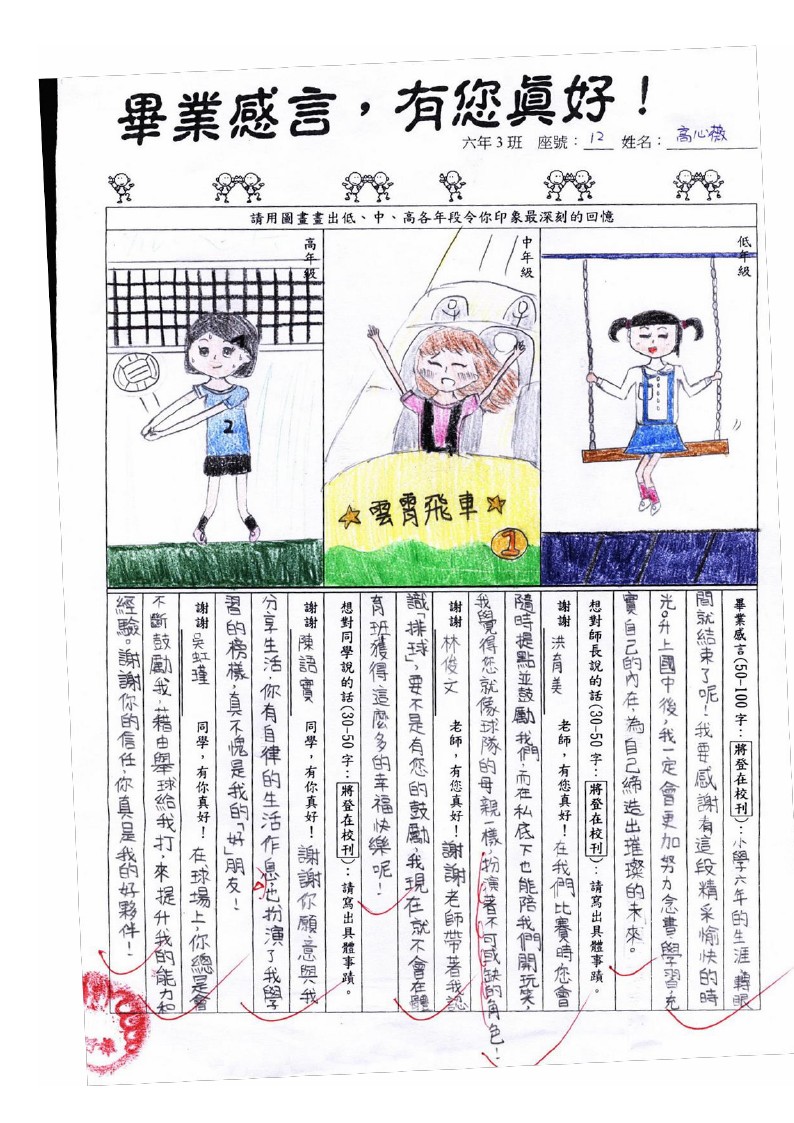 畢業感言，有您真好！
六年3班 座號：12 姓名：高心薇
請用圖畫畫出低、中、高各年段令你印象最深刻的回憶
低年級
中年級
雲霄飛車
1
高年級
2
畢業感言(50-100字：將登在校刊)：小學六年的生涯，轉眼
間就結束了呢！我要感謝有這段精采愉快的時
光。升上國中後，我一定會更加努力念書、學習，充
實自己的內在，為自己締造出璀璨的未來。
想對師長說的話(30-50字：將登在校刊)：請寫出具體事蹟。
謝謝 洪育美 老師，有您真好！在我們比賽時您會
隨時提點並鼓勵我們，而在私底下也能陪我們開玩笑，
我覺得您就像球隊的母親一樣，扮演著不可或缺的角色！
謝謝 林俊文 老師，有您真好！謝謝老師帶著我認
識「排球」，要不是有您的鼓勵，我現在就不會在體
育班獲得這麼多的幸福快樂呢！
想對同學說的話(30-50字：將登在校刊)：請寫出具體事蹟。
謝謝 陳語寶 同學，有你真好！謝謝你願意與我
分享生活，你有自律的生活作息，也扮演了我學
習的榜樣，真不愧是我的「好」朋友！
謝謝 吳虹瑾 同學，有你真好！在球場上，你總是會
不斷鼓勵我，藉由舉球給我打，來提升我的能力和
經驗。謝謝你的信任，你真是我的好夥伴！